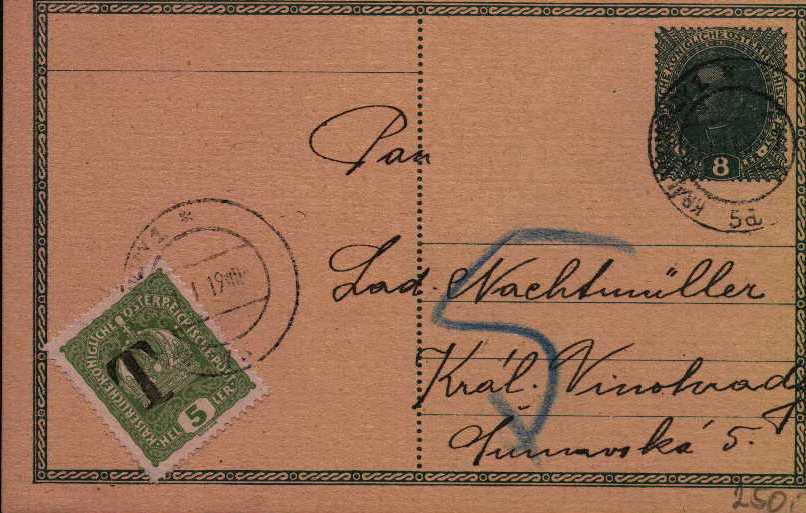 KAISERLICHE KÖNIGLICHE ÖSTERREICHISCHE
8
5a
Pan
Lad. Nachtmüller
Král. Vinohrady
Šumavská 5.
5
1 *
KAISERLICHE KÖNIGLICHE ÖSTERREICHISCHE
T
HEL 5 LER
250